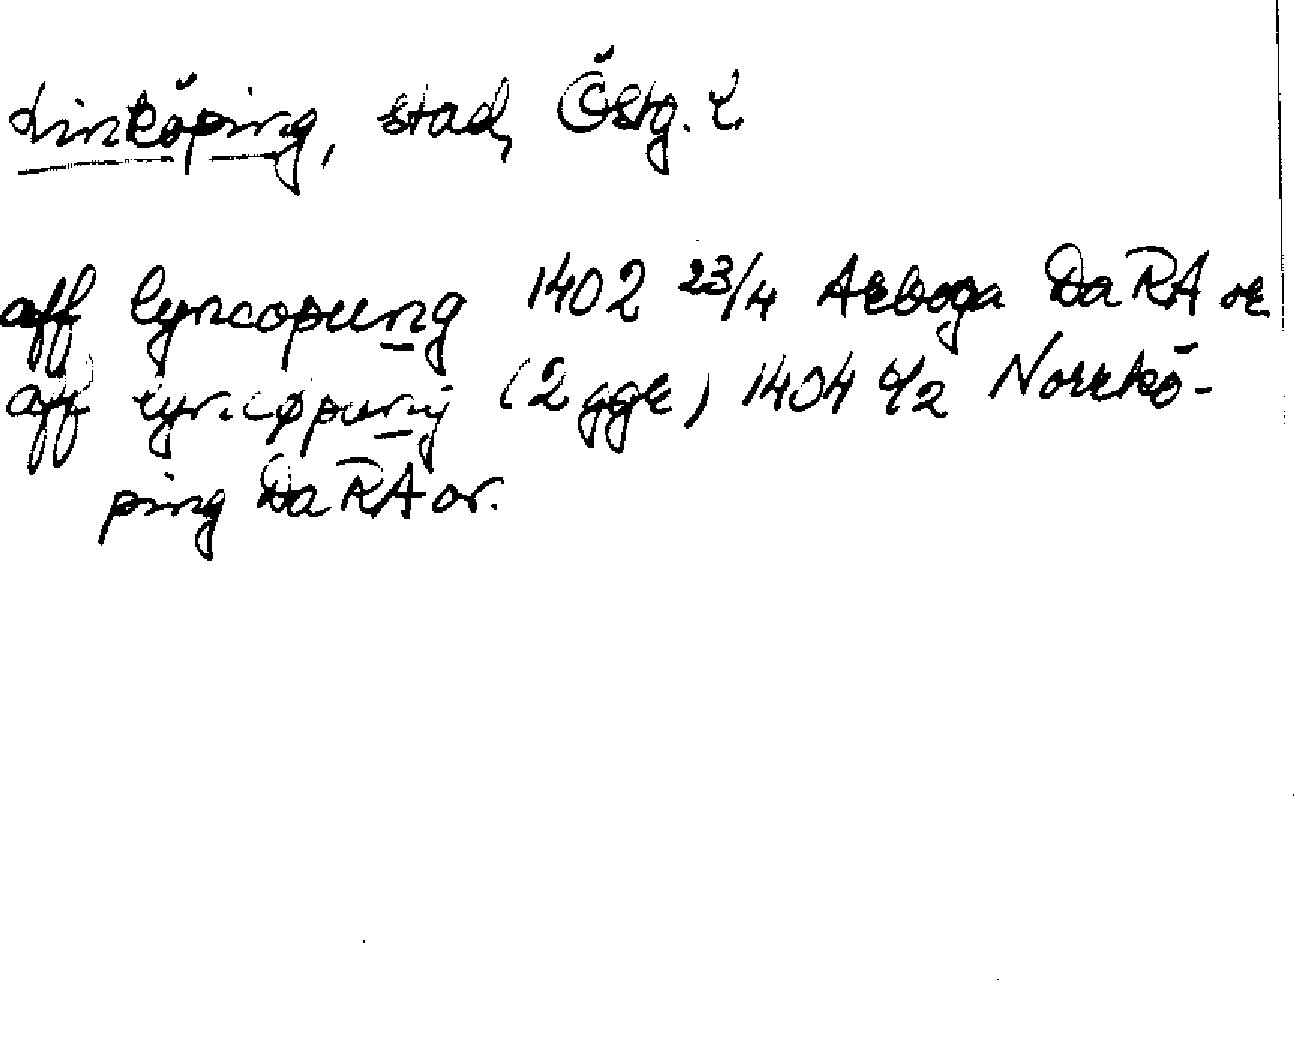 Linköping, stad, Östg. l.
aff lyncopung 1402 23/4 Arboga DaRA or
aff lyncøpung (2 ggr) 1404 4/2 Norrkö-
ping DaRA or.